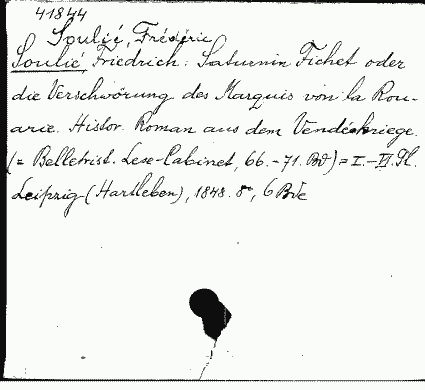 41844
Soulié, Frédéric
Soulié, Friedrich: Saturnin Fichet oder
die Verschwörung des Marquis von la Rou-
arie. Histor. Roman aus dem Vendéekriege.
(= Belletrist. Lese-Cabinet, 66.-71. Bd) = I.-VI. Tl.
Leipzig (Hartleben), 1848. 8°, 6 Bde